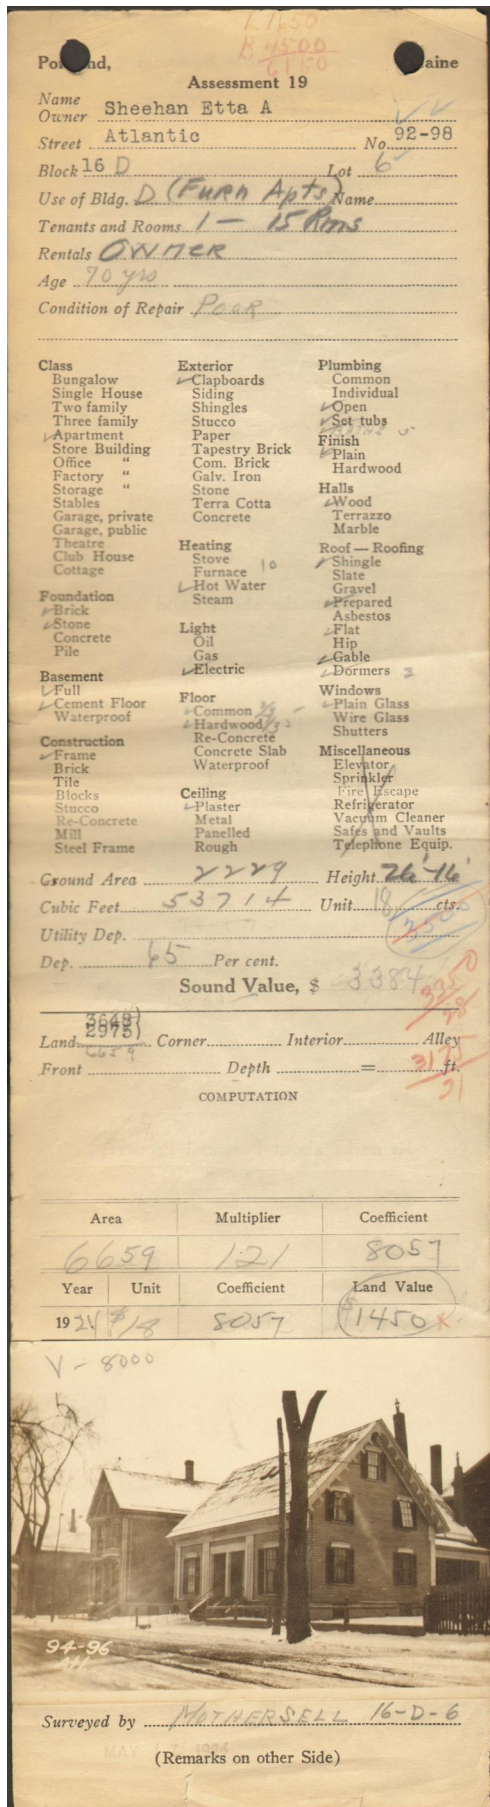 L 1650
B 4500
6150
Po nd, aine
Assessment 19
Name
Owner Sheehan Etta A
Street Atlantic No. 92-98
Block 16 D Lot 6
Use of Bldg. D (Furn Apts) Name
Tenants and Rooms 1 - 15 Rms
Rentals OWNER
Age 70 yrs
Condition of Repair POOR
Class
Bungalow
Single House
Two family
Three family
Apartment
Store Building
Office "
Factory "
Storage "
Stables
Garage, private
Garage, public
Theatre
Club House
Cottage
Foundation
Brick
Stone
Concrete
Pile
Basement
Full
Cement Floor
Waterproof
Construction
Frame
Brick
Tile
Blocks
Stucco
Re-Concrete
Mill
Steel Frame
Exterior
Clapboards
Siding
Shingles
Stucco
Paper
Tapestry Brick
Com. Brick
Galv. Iron
Stone
Terra Cotta
Concrete
Heating
Stove
Furnace 10
Hot Water
Steam
Light
Oil
Gas
Electric
Floor
Common
Hardwood
Re-Concrete
Concrete Slab
Waterproof
Ceiling
Plaster
Metal
Panelled
Rough
Plumbing
Common
Individual
Open
Set tubs
5
Finish
Plain
Hardwood
Halls
Wood
Terrazzo
Marble
Roof — Roofing
Shingle
Slate
Gravel
Prepared
Asbestos
Flat
Hip
Gable
Dormers 2
Windows
Plain Glass
Wire Glass
Shutters
Miscellaneous
Elevator
Sprinkler
Fire Escape
Refrigerator
Vacuum Cleaner
Safes and Vaults
Telephone Equip.
Ground Area 2229 Height 26'-16'
Cubic Feet 53714 Unit 18 cts.
Utility Dep.
Dep. 65 Per cent.
Sound Value, $ 3384
3648)
2975)
Land 6659 Corner Interior Alley
Front Depth = ft.
COMPUTATION
Area Multiplier Coefficient
6659 1.21 8057
Year Unit Coefficient Land Value
1924 $18 8057 $1450 x
V - 8000
94-96
Surveyed by MOTHERSELL 16-D-6
(Remarks on other Side)